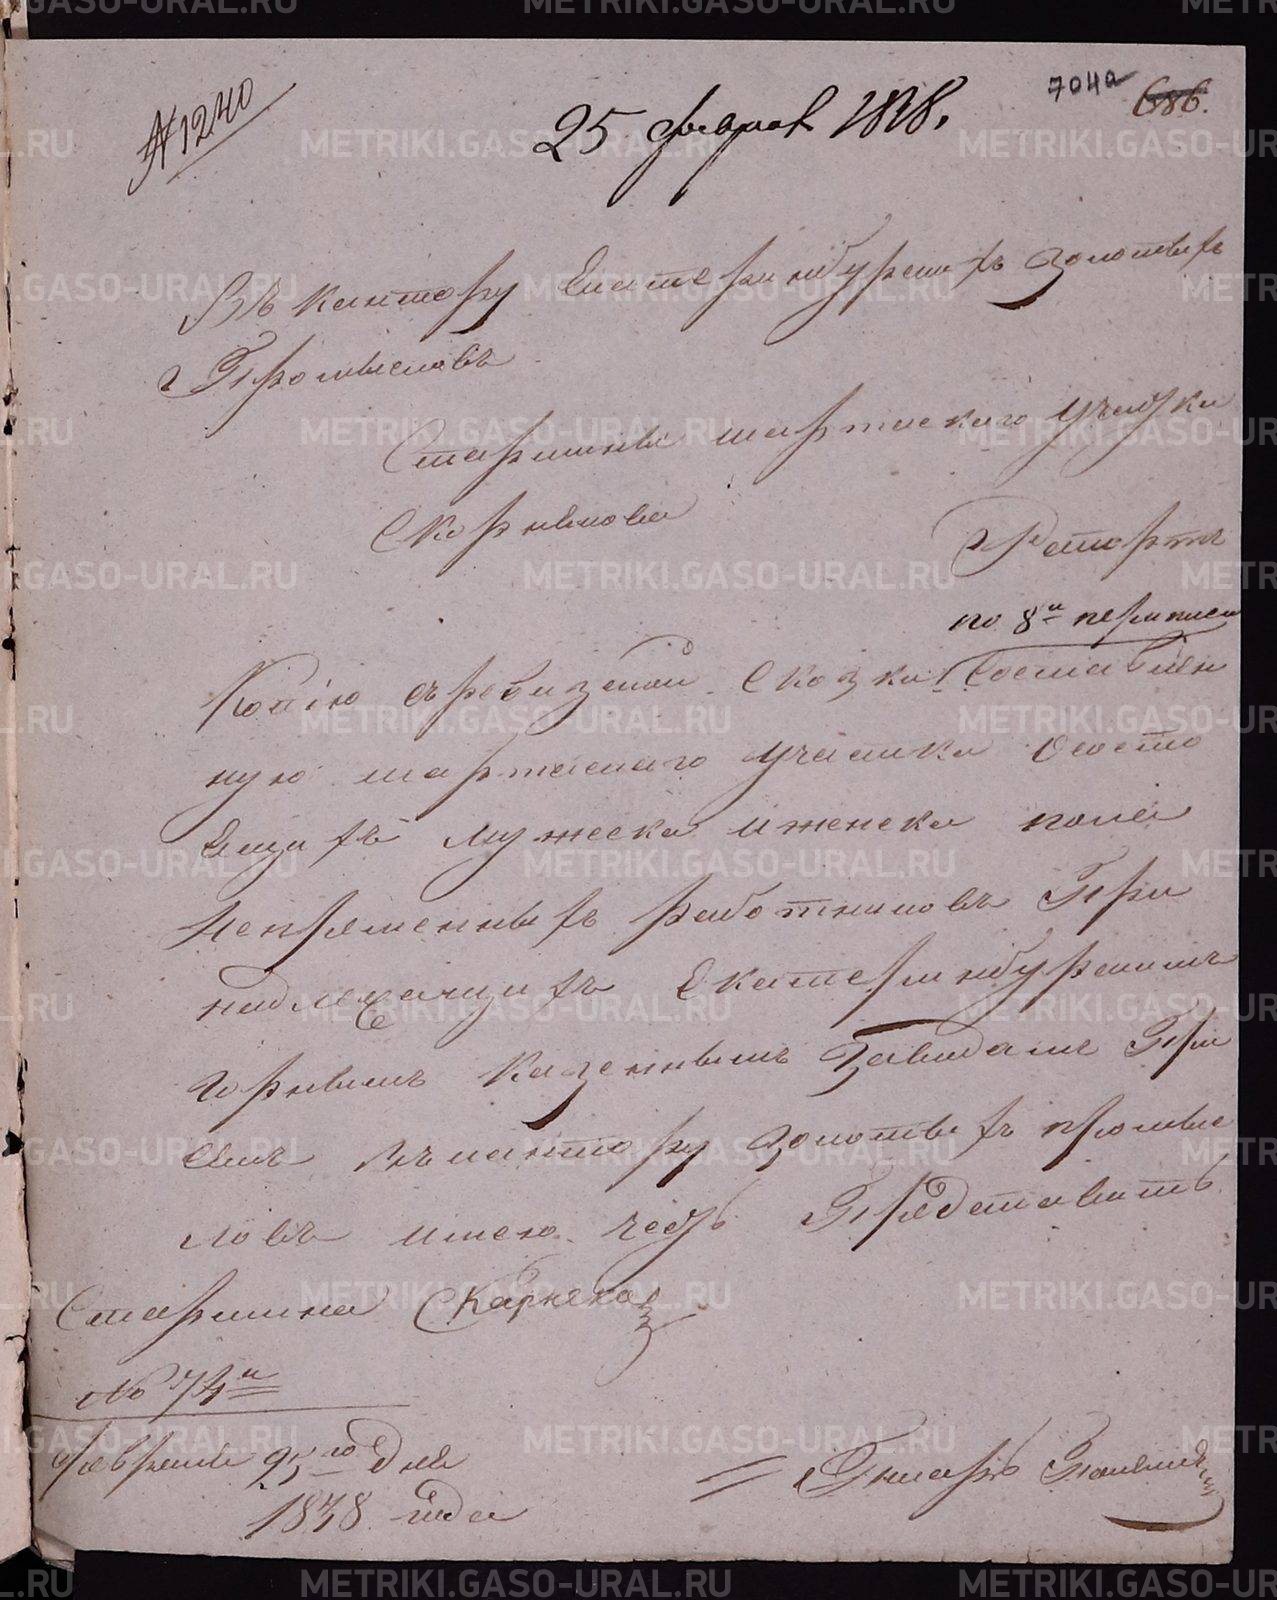 № 1240
704а
686.
25 феврал 1838.
Въ кантору Екатеринбурскихъ золотыхъ
Промысловъ
Старшины шарташскаго участка
Скорнякова
Рапортъ
по 8й переписи
Копiю съ ревизской скозки составлен
ную шарташскаго участка о состо
ящихъ мужеска и женска пола
непременныхъ работниковъ При
надлежащихъ Екатеринбурскимъ
горнымъ казеннымъ Заводамъ При
семъ въ кантору золотыхъ промыс
ловъ имею честь Представить
Старшина Скарнеков
№ 74й
Февраля 25го дня
1838 года
Писарь
METRIKI.GASO-URAL.RU